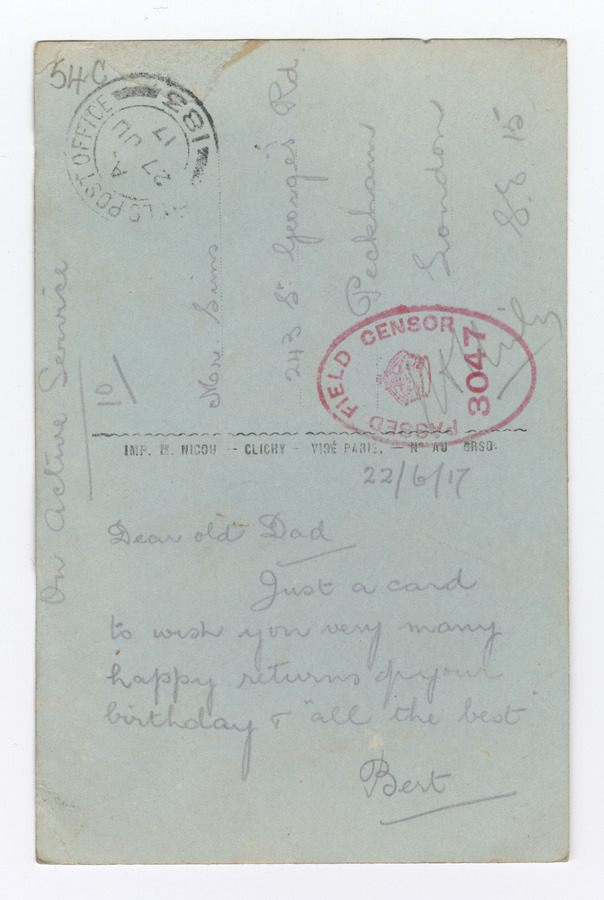 54C
FIELD POST OFFICE
183
A
27 JU
17
On Active Service
10/
Mr. Sims
243 St George's Rd
Peckham
London
S.E 15
PASSED FIELD CENSOR
3047
IMP. M. NICOU -- CLICHY - VISÉ PARIS. — No AU
22/6/17
Dear old Dad
Just a card
to wish you very many
happy returns of your
birthday & "all the best"
Bert